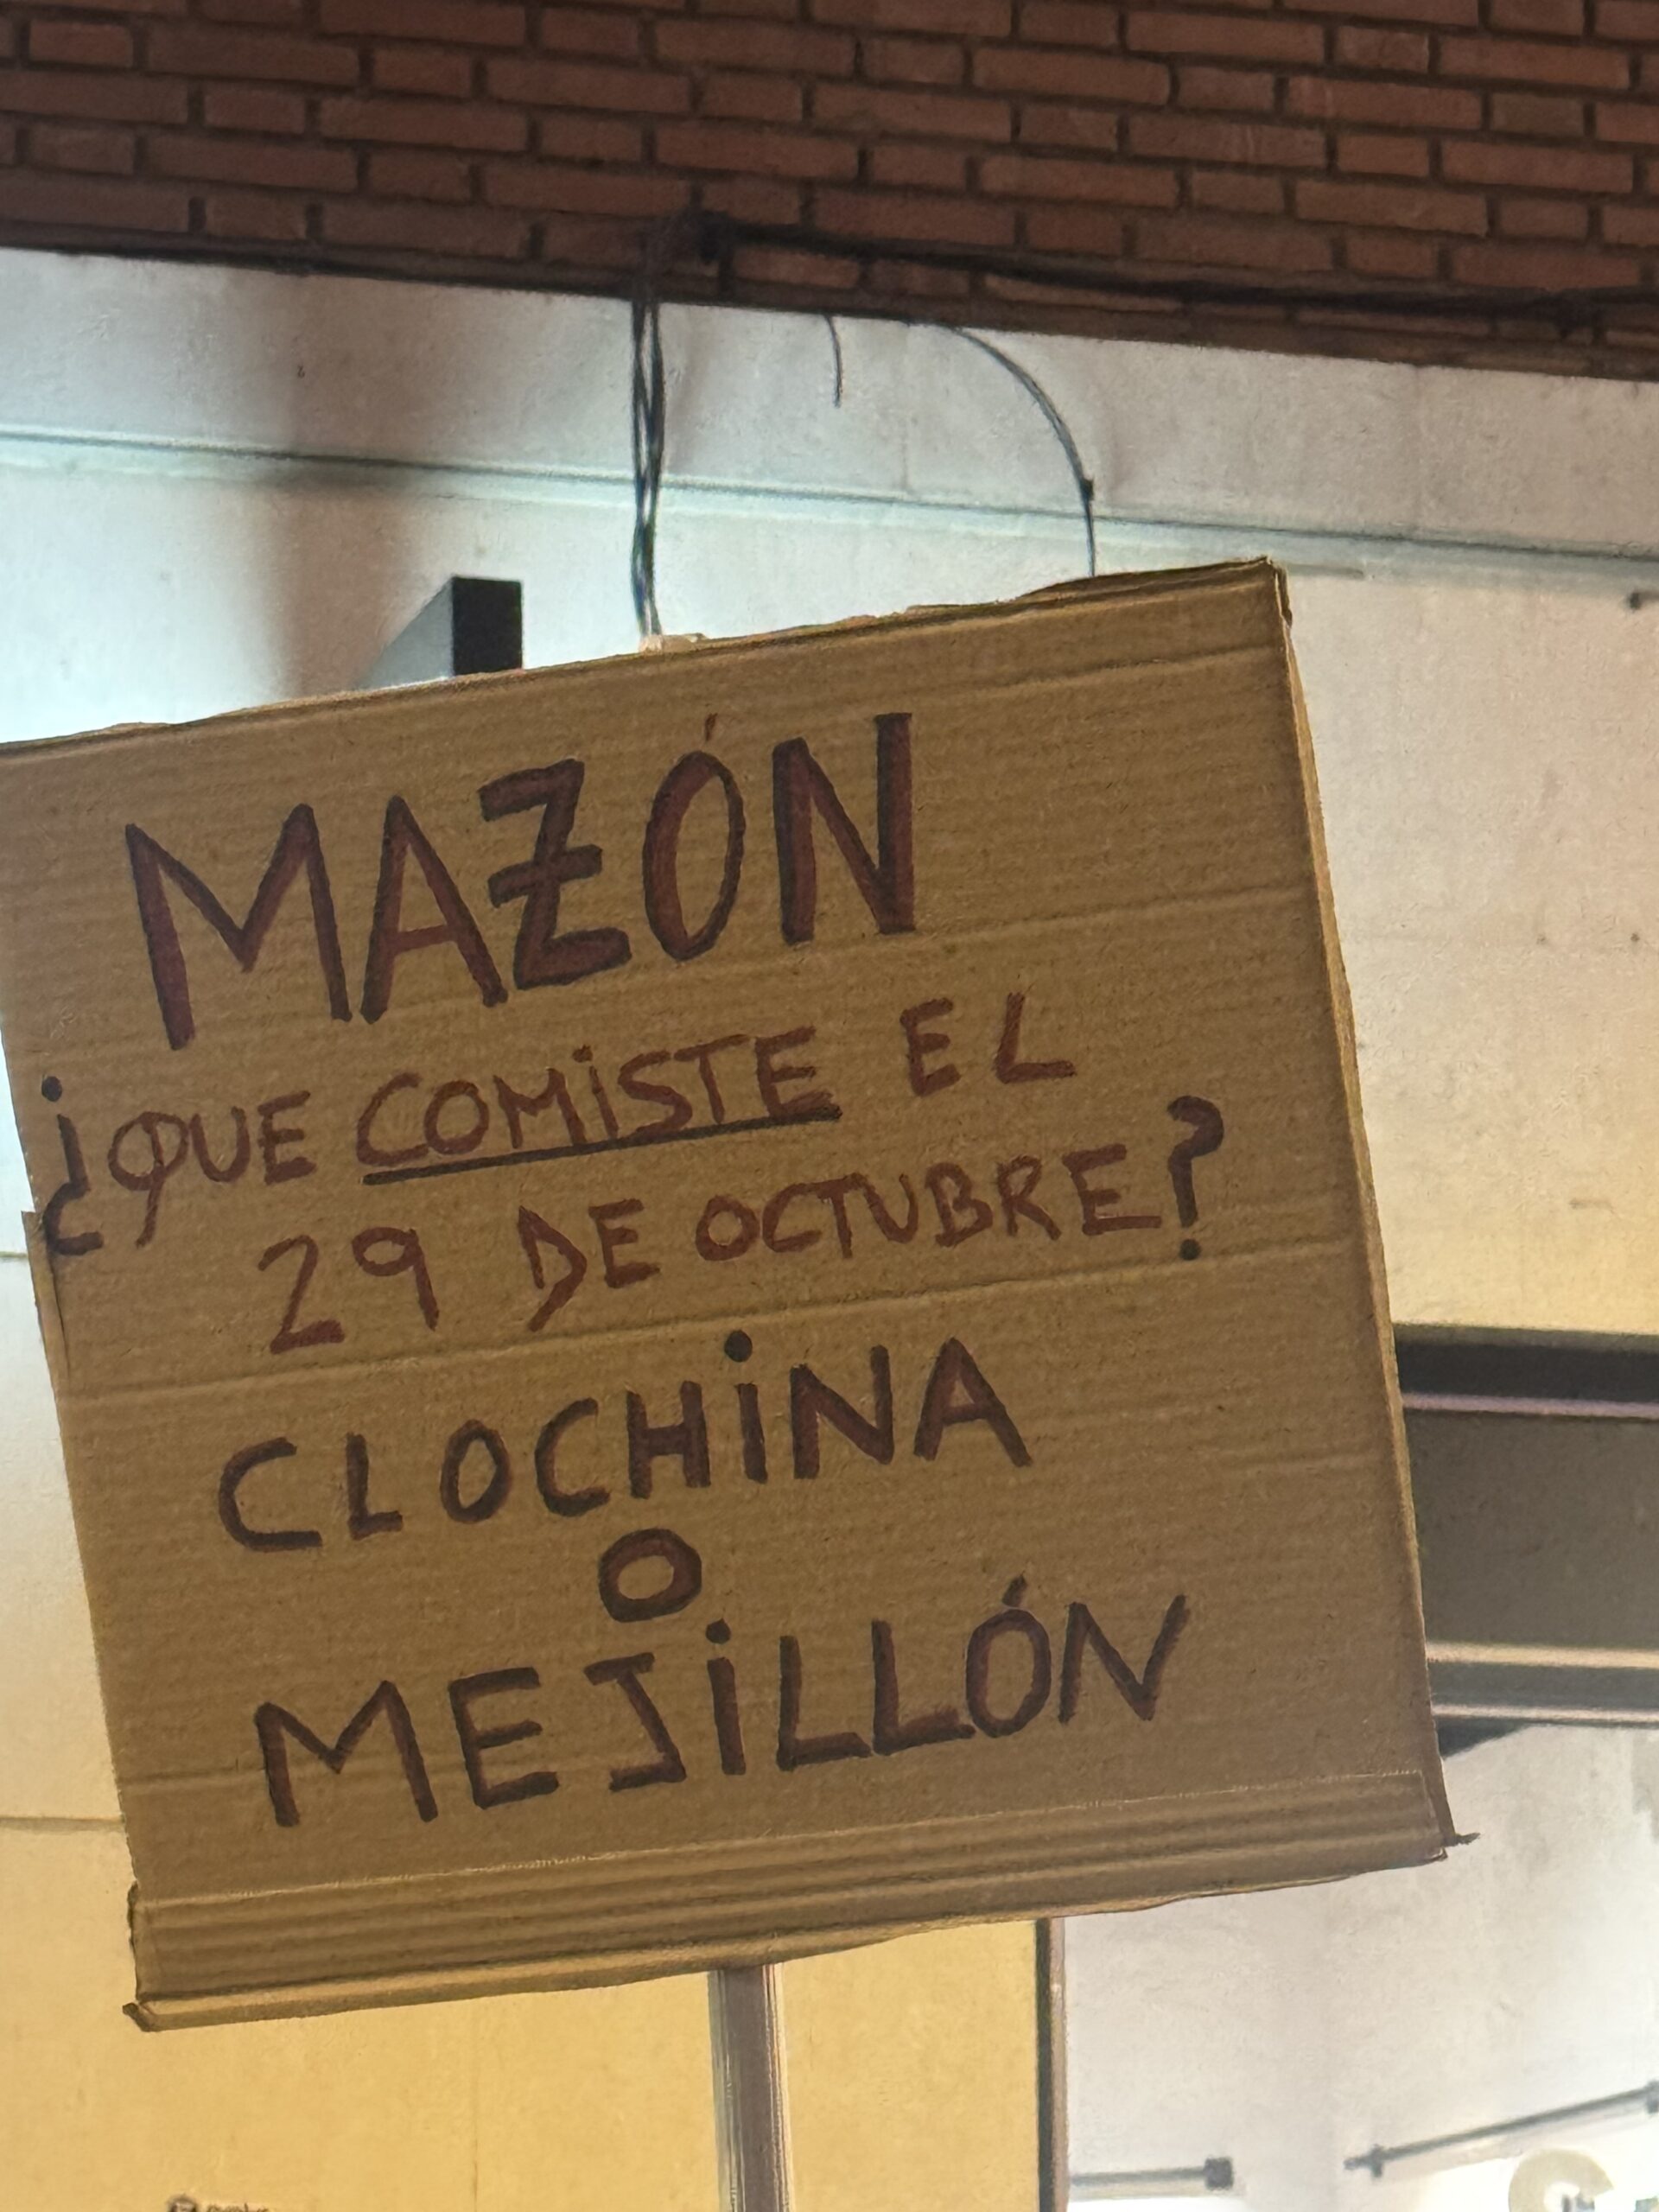 MAZÓN
¿QUE COMiSTE EL
29 DE OCTUBRE?
CLOCHiNA
O
MEJiLLÓN